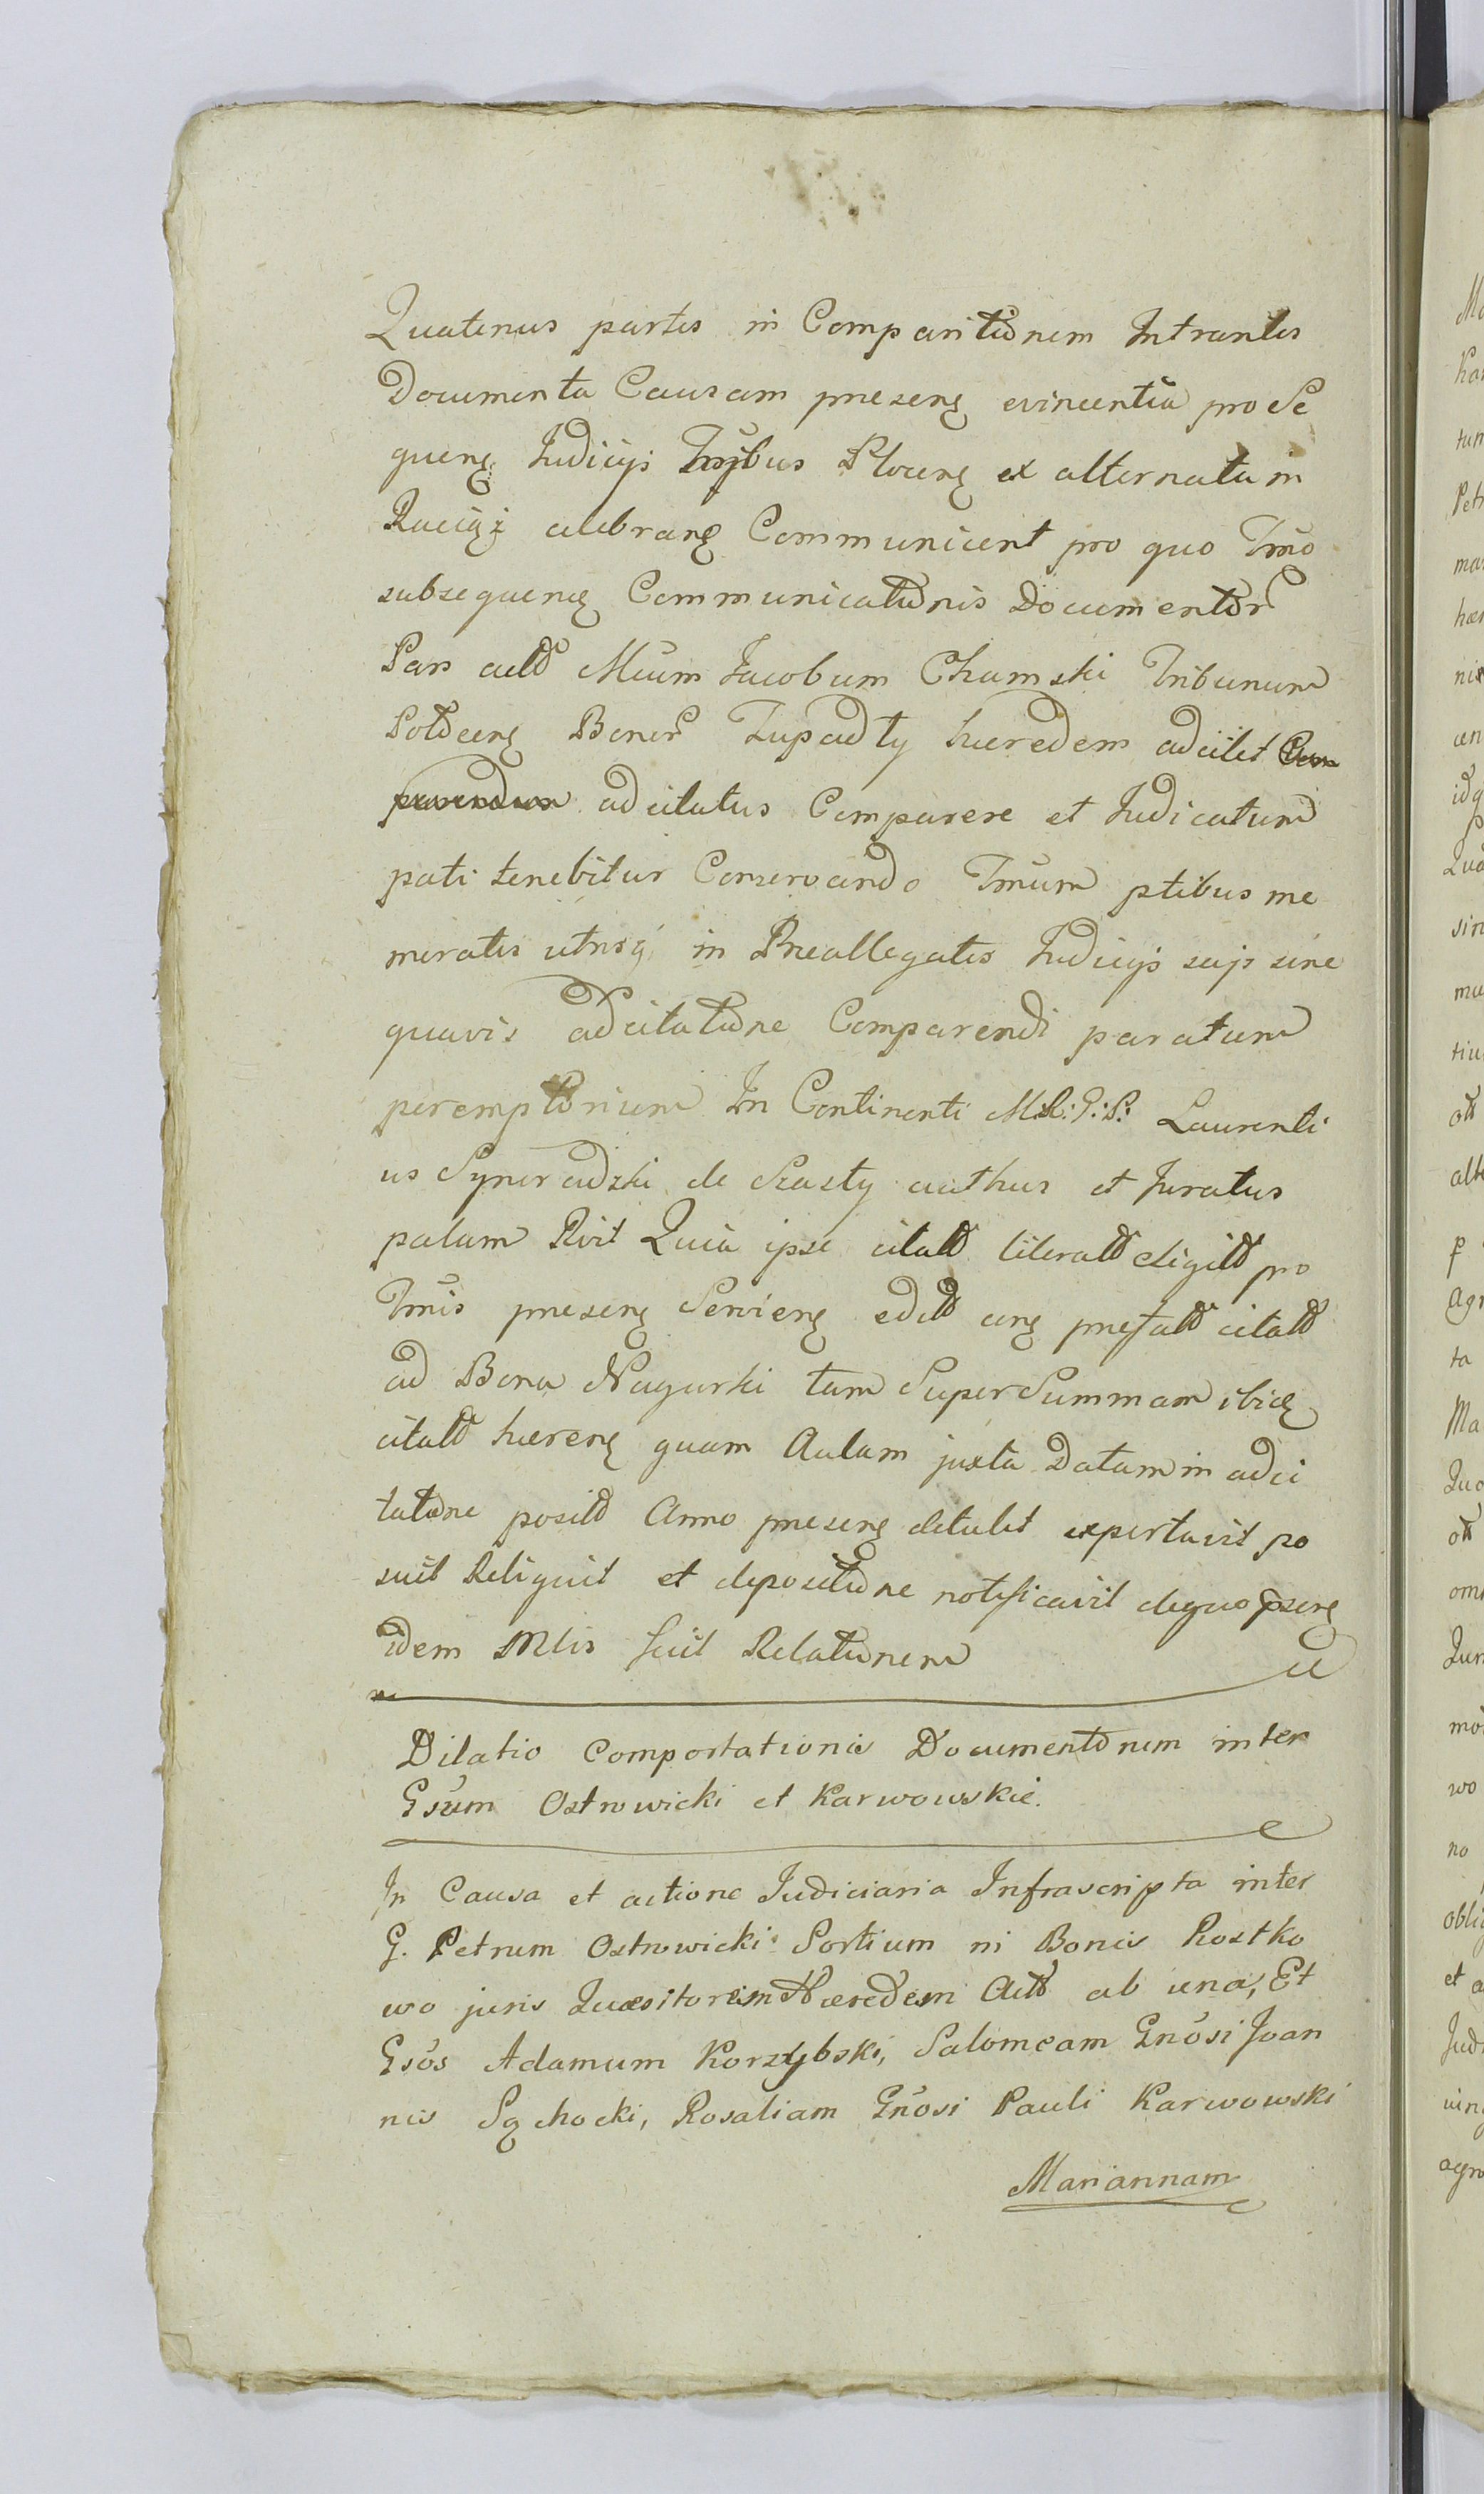 Quatenus partes in Comparitionem Intrantes
Documenta Causam presens evincentia pro Se
quens Judicijs Trrijbus Plocens ex alternata in
Raciąż celebrans Communicent pro quo Tmo
subsequens Communicationis Documentor
Pars actt Mcum Jacobum Chamski Tribunum
Bonor Tupadły hæredem adcitet Com
parendum adcitatus Comparere et Judicatum
pati tenebitur Conservando Tmum ptibus me
moratis utrisq in Preallegatis Judicijs suis sine
quavis adcitatione Comparendi paratum
peremptorium In Continenti M:R:G:S: Laurenti
us Synoradzki de Szasty authus et Juratus
palam Rvit Quia ipse citatt literatt sigitt pro
Tmis presens Serviens editt prefatt citatt
ad Bona Nagurki tam Super Summam ibid
citatt hærens quam Aulam juxta Datam in adci
tatione positt Anno presens detulit exportavit po
suit Reliquit et depositione notificavit dequo psens
idem Mtis fecit Relationem
Dilatio Comportationis Documentorum inter
Gsum Ostrowicki et Karwowskie.
In Causa et actione Judiciaria Infrascripta inter
G. Petrum Ostrowicki Sortium in Bonis Rostko
wo juris Quæsitorem Hæredem Actt ab una, Et
Gsos Adamum Korzybski, Salomeam Gnosi Joan
nis Sąchocki, Rosaliam Gnosi Pauli Karwowski
Mariannam